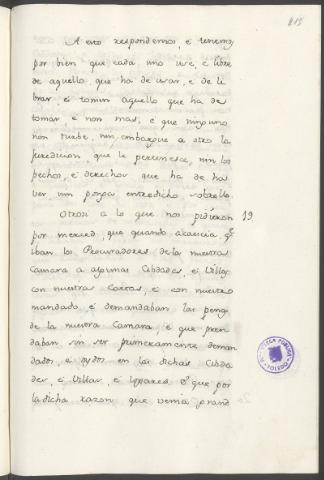 215
A esto respondemos, e tenemos
por bien que cada uno use, e libre
de aquello que ha de usar, e de li
brar, e tomen aquello que ha de
tomar e non mas, e que ninguno
non turbe, nin embargue a otro la
juredicion, que le pertenesca, nin los
pechos, e derechos que ha de ha
ver nin ponga entredicho sobrello.
Otrosi a lo que nos pidieron 19
por merced, que quando acaecia qe
iban los Procuradores de la nuestra
Camara a algunas Cibdades, e Villas
con nuestras Cartas, e con nuestro
mandado, e demandaban las penas
de la nuestra Camara, e que pren
daban sin ser primeramente deman
dados, e oydos en las dichas Cibda
des, e Villas, e Lugares. E que por
la dicha razon que venia grand
BIBLIOTECA PUBLICA
TOLEDO